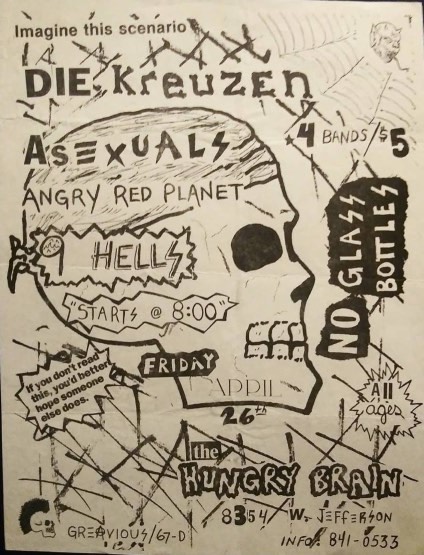 Imagine this scenario
DIE KREUZEN
4 BANDS/$5
ASEXUALS
ANGRY RED PLANET
HELLS
"STARTS @ 8:00"
NO GLASS
BOTTLES
If you don't read
this, you'd better
hope someone
else does.
FRIDAY
APRIL
26th
All
ages
the
HUNGRY BRAIN
8354 W. JEFFERSON
GREAVIOUS/67-D
INFO: 841-0533